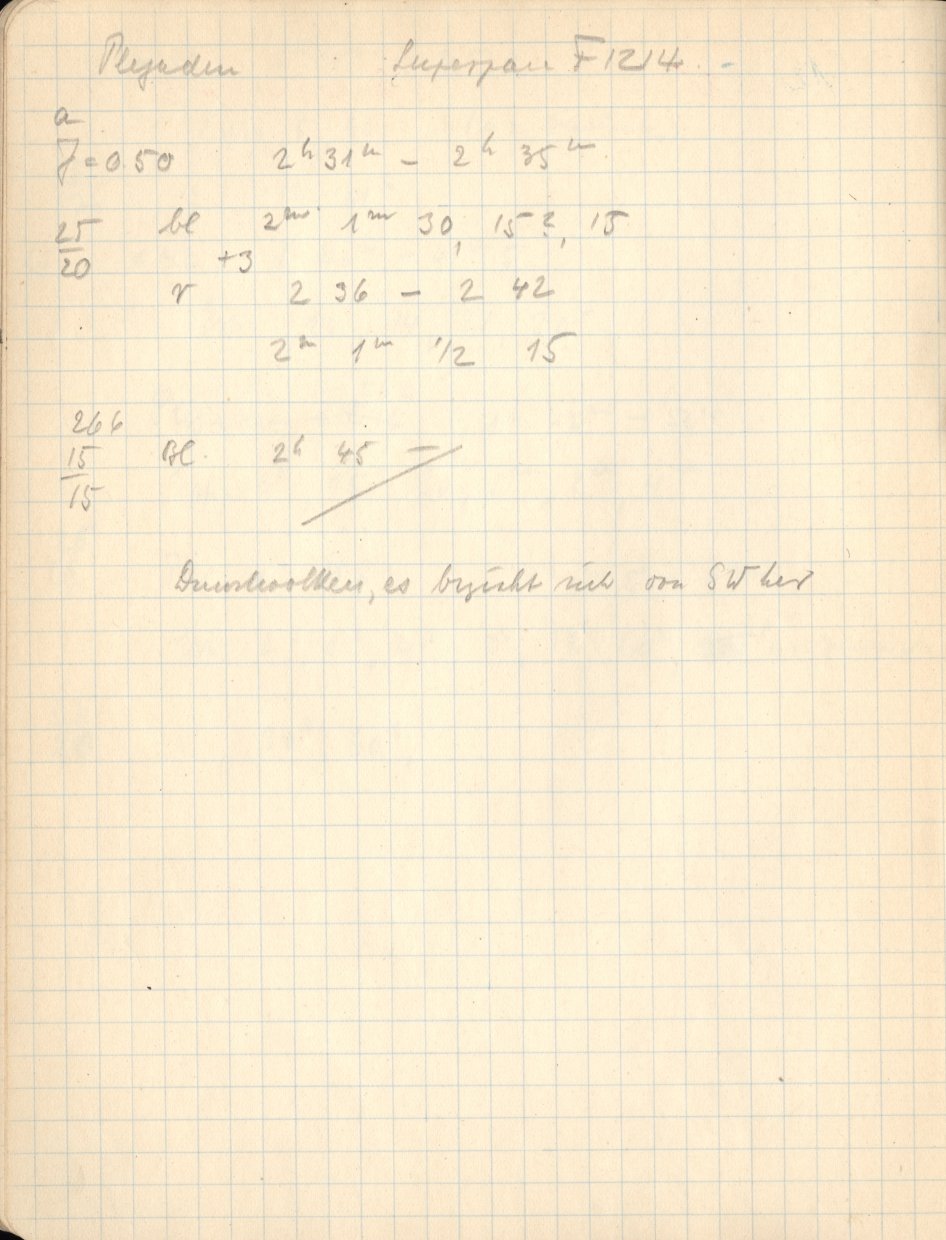 Plejaden Superpan F 1214
a
J = 0 50 2h 31m – 2h 35m
25 bl 2m 1m 30, 15?, 15
20 +3
r 2 36 – 2 42
2m 1m 1/2 15
266
15 Bl 2h 45 –
15
Dunstwolken, es bezieht sich von SW her